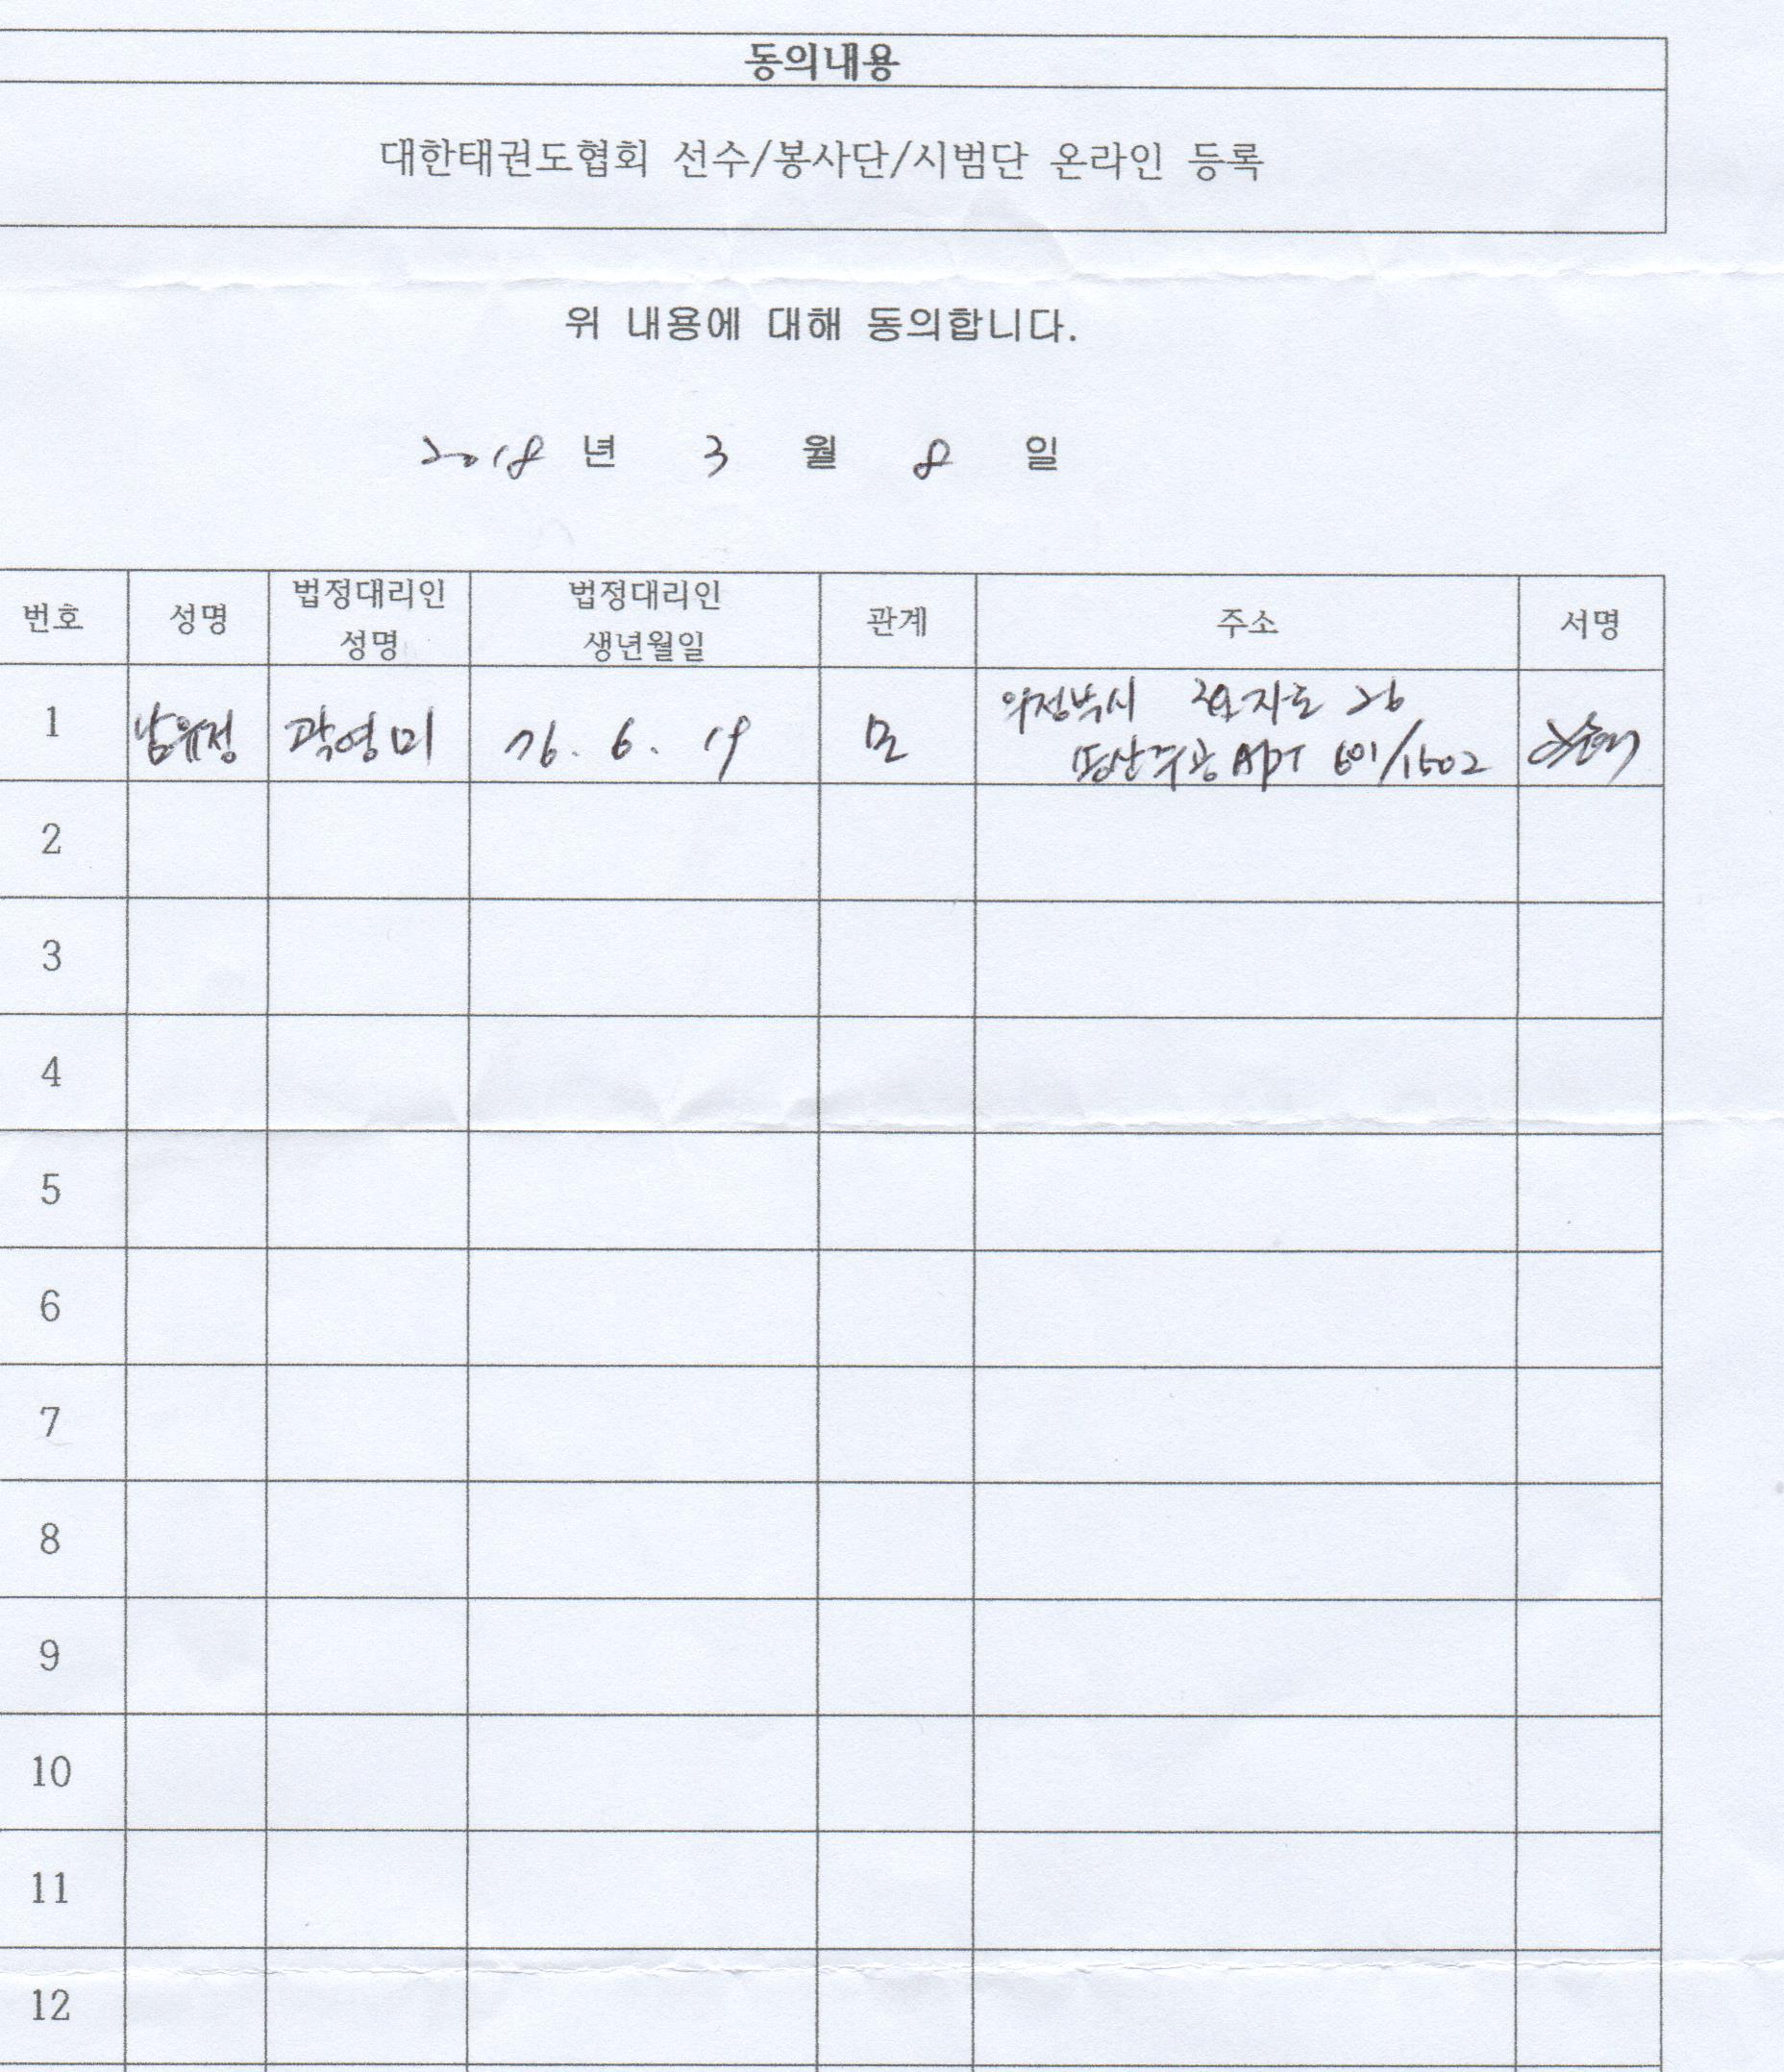 동의내용
대한태권도협회 선수/봉사단/시범단 온라인 등록
위 내용에 대해 동의합니다.
2018 년 3 월 8 일
번호 성명 법정대리인 성명 법정대리인 생년월일 관계 주소 서명
1 남유정 곽영미 76. 6. 19 모 의정부시 26
주공 APT 601/1502
2
3
4
5
6
7
8
9
10
11
12